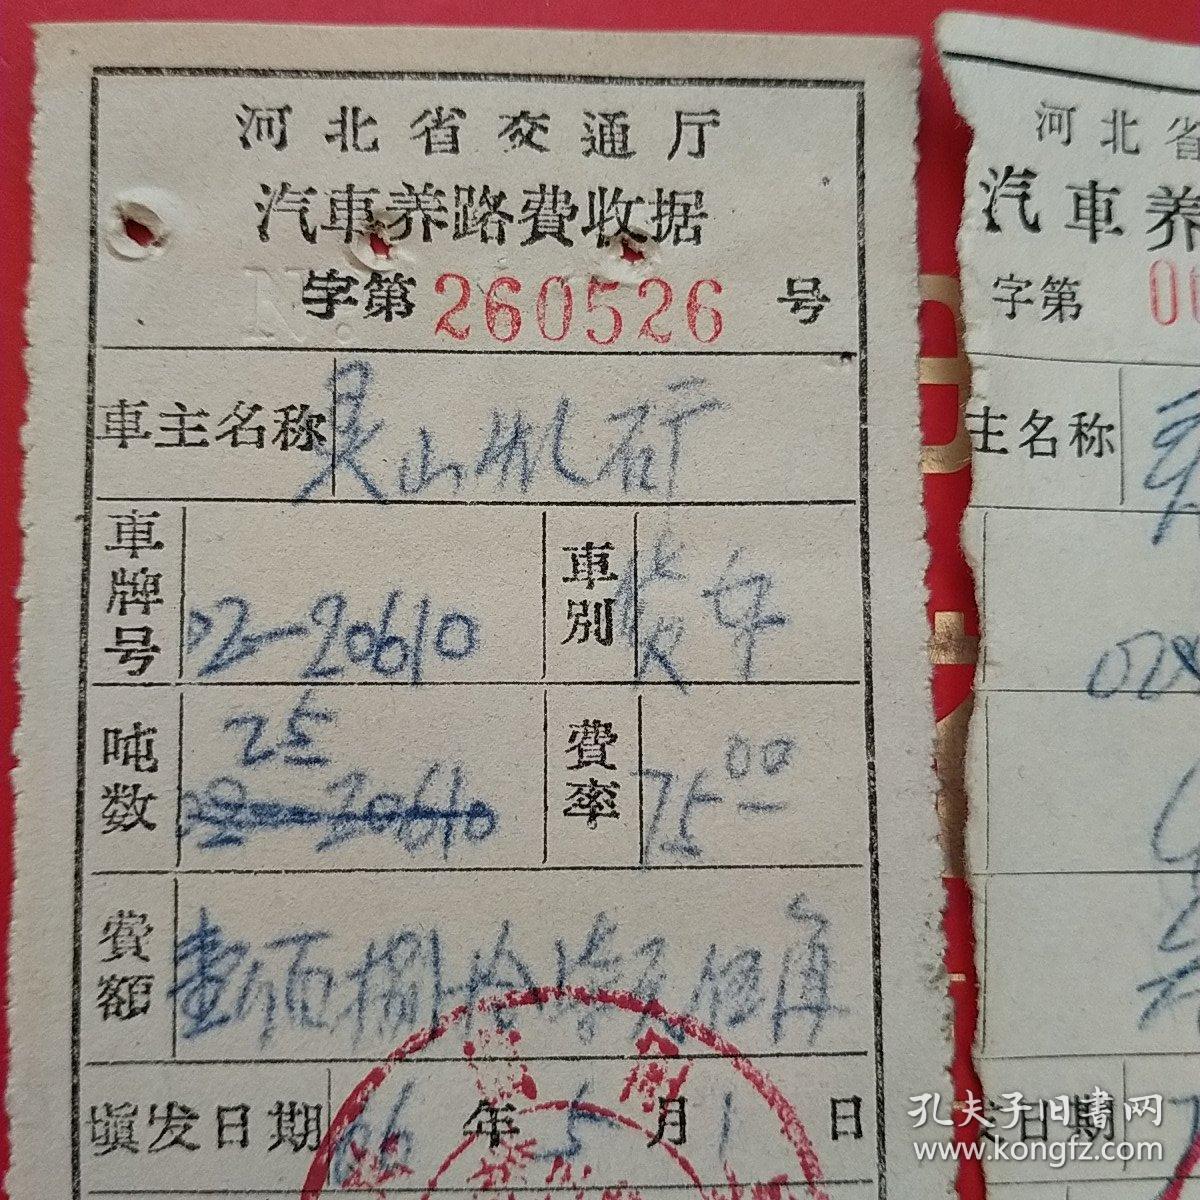 河北省交通厅
汽車养路費收据
字第260526号
車主名称 灵山机矿
車牌号 02-20610 車別 货车
吨数 25 02-20610 費率 75.00
費額 壹佰捌拾柒元伍角
塡发日期 66年5月1日
河北省
汽車养
字第 00
主名称
028
发日期
孔夫子旧書网
www.kongfz.com